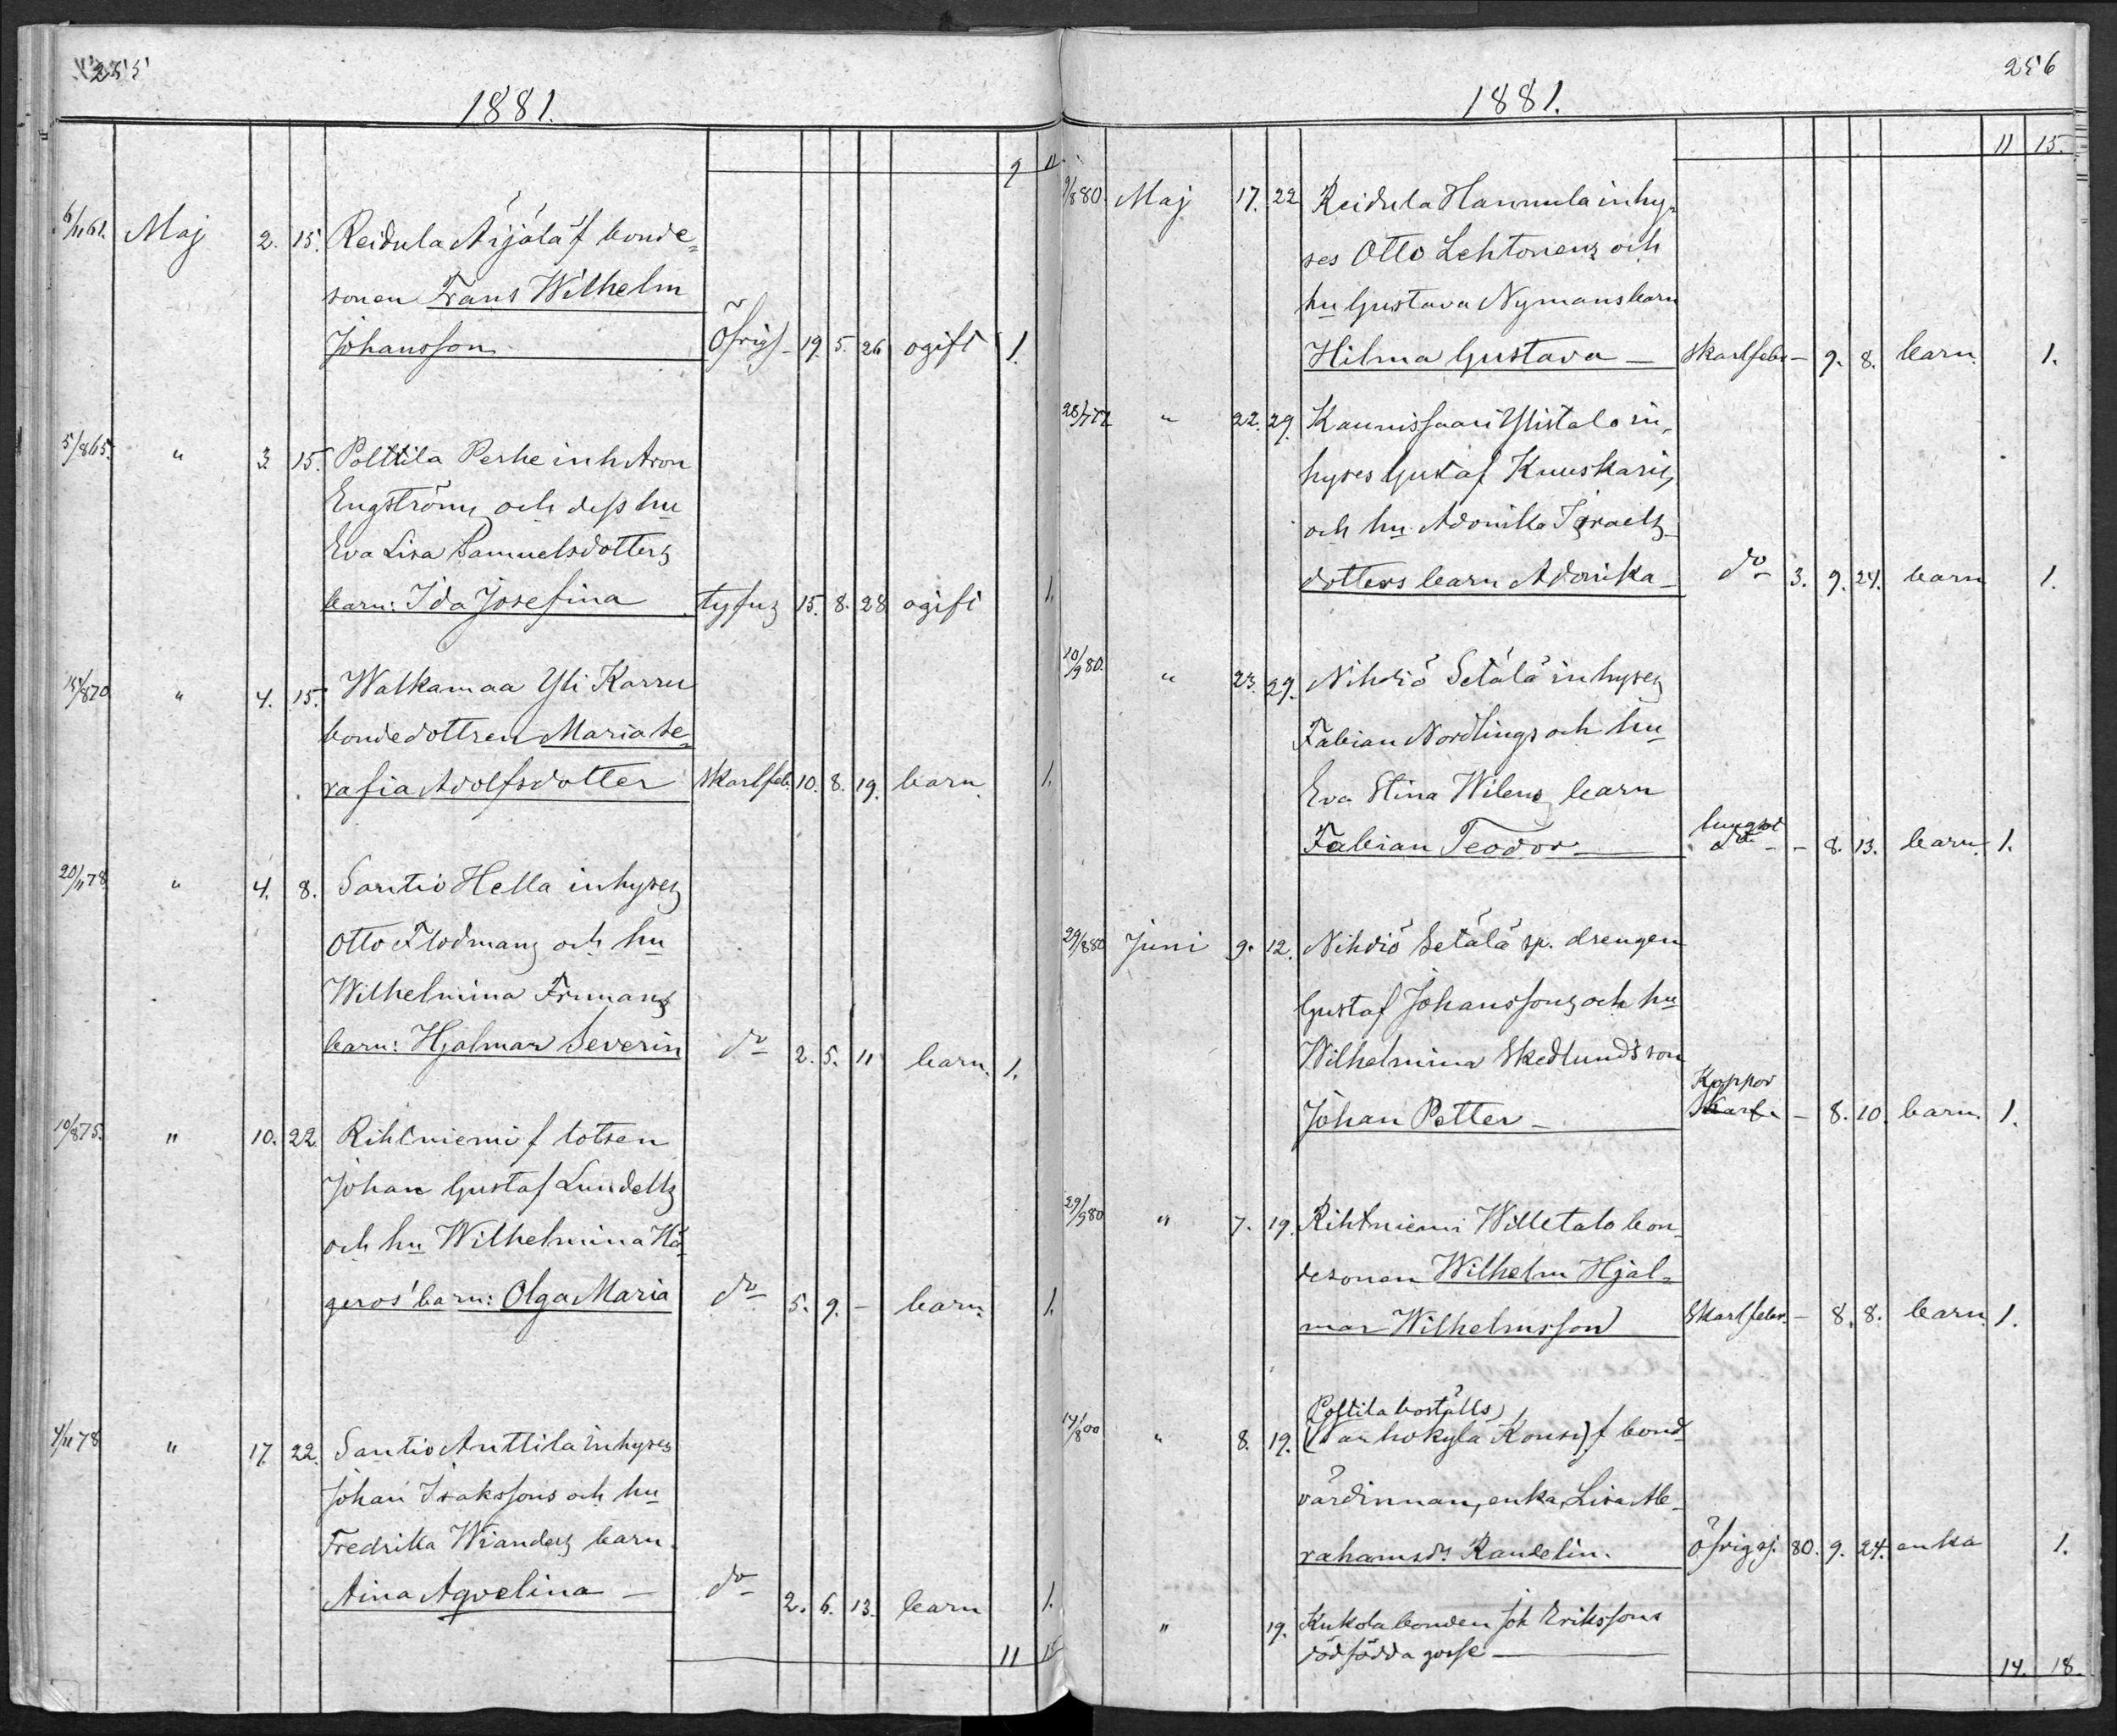 255
1881.
9 11
6/11 61. Maj 2. 15. Reidula Äijälä f bonde-
sonen Frans Wilhelm
Johansson Öfrigt - 19. 5. 26 ogift 1.
5/8 65. " 3 15. Polttila Perhe inh Aron
Engströms och dess hu
Eva Lisa Samuelsdotters
barn: Ida Josefina tyfus 15. 8. 28 ogift 1.
15/8 70 " 4. 15. Walkamaa Yli Karru
bondedottren Maria Se-
rafia Adolfsdotter Skarlfeb. 10. 8. 19. barn 1.
20/11 78 " 4. 8. Santio Hella inhyses
Otto Flodmans och hu
Wilhelmina Frumans
barn: Hjalmar Severin do 2. 5. 11 barn. 1.
10/8 75. " 10. 22. Rihtniemi f lotsen
Johan Gustaf Lundells
och hu Wilhelmina Hä-
geros' barn: Olga Maria do 5. 9. - barn. 1.
4/11 78 " 17. 22. Santio Anttila inhyses
Johan Isakssons och hu
Fredrika Wianders barn
Aina Aqvelina - do 2. 6. 13. barn 1.
11 15
256
1881.
11 15.
9/8 80. Maj 17. 22 Reidula Hannula inhy-
ses Otto Lehtonens och
hu Gustava Nymans barn
Hilma Gustava - Skarlfeber - 9. 8. barn. 1.
28/7 77 " 22. 29. Kaunissaari Ylistalo in-
hyses Gustaf Kuuskaris
och hu Adonika Israels-
dotters barn Adonika - do 3. 9. 24. barn 1.
10/9 80. " 23. 29. Nihdiö Setälä inhyses
Fabian Nordlings och hu
Eva Stina Wilens barn
Fabian Teodor - lungsot - 8. 13. barn. 1.
29/8 80 Juni 9. 12. Nihdiö Setälä sp. drengen
Gustaf Johanssons och hu
Wilhelmina Skedlunds son
Johan Petter - Koppor Skarf. - 8. 10. barn. 1.
29/9 80 " 7. 19. Rihtniemi Willetalo bon-
desonen Wilhelm Hjal-
mar Wilhelmsson Skarlfeber. - 8. 8. barn. 1.
Polttila boställs)
14/8 00 " 8. 19. (Wanhokylä Konsi) f bond
värdinnan, enka, Lisa Ab-
rahamsdr Randelin. Öfrig sj. 80. 9. 24. enka 1.
" 19. Kukola bonden Joh Erikssons
dödfödda gosse -
14. 18.